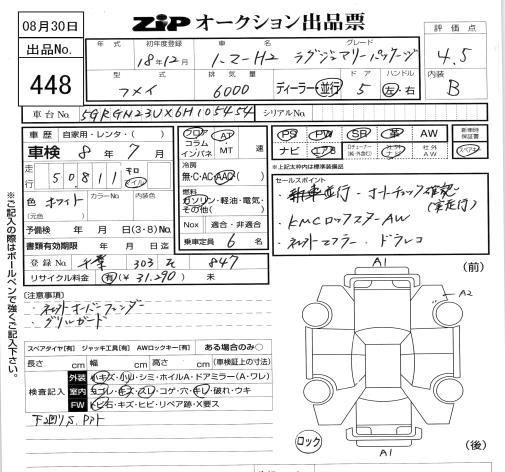 08月30日
ZiP オークション出品票
出品No.
448
年式 初年度登録 車名 グレード
18年12月 ハマーH2 ラグジュアリーパッケージ
型式 排気量 ドア ハンドル
フメイ 6000 ディーラー・並行 5 左・右
評価点
4.5
内装
B
車台No. 5GRGN23UX6H105454 シリアルNo.
車歴 自家用・レンタ・( )
車検 8年 7月
走行 50811 キロ マイル
色 ホワイト カラーNo 内装色
(元色)
予備検 年 月 日(3・8)No.
書類有効期限 年 月 日迄
登録No 千葉 303 847
リサイクル料金 有(¥ 31.290) 未
フロア コラム インパネ
AT MT 速
冷房
無・C・AC・AAC
燃料
ガソリン・軽油・電気・その他( )
Nox 適合・非適合
乗車定員 6 名
PS PW SR 革 AW
ナビ エアB
新車時保証書
社外ナビ 社外AW
※上記太枠内は標準装備品
セールスポイント
・新車並行・オートチェック確認
・KMCロックスターAW
・ネットマフラー・ドラレコ
[注意事項]
・ネットオーバーフェンダー
・グリルガード
スペアタイヤ[有] ジャッキ工具[有] AWロックキー[有] ある場合のみ○
長さ cm 幅 cm 高さ cm (車検証上の寸法)
検査記入
外装 小キズ・小凹・シミ・ホイルA・ドアミラー(A・ワレ)
室内 ヨゴレ・キズ・スレ・コゲ・穴・キレ・破れ・ウキ
FW トビ石・キズ・ヒビ・リペア跡・X要ス
下廻りS.Pアト
※ご記入の際はボールペンで強くご記入下さい。
A1
(前)
A2
A1
ロック
(後)